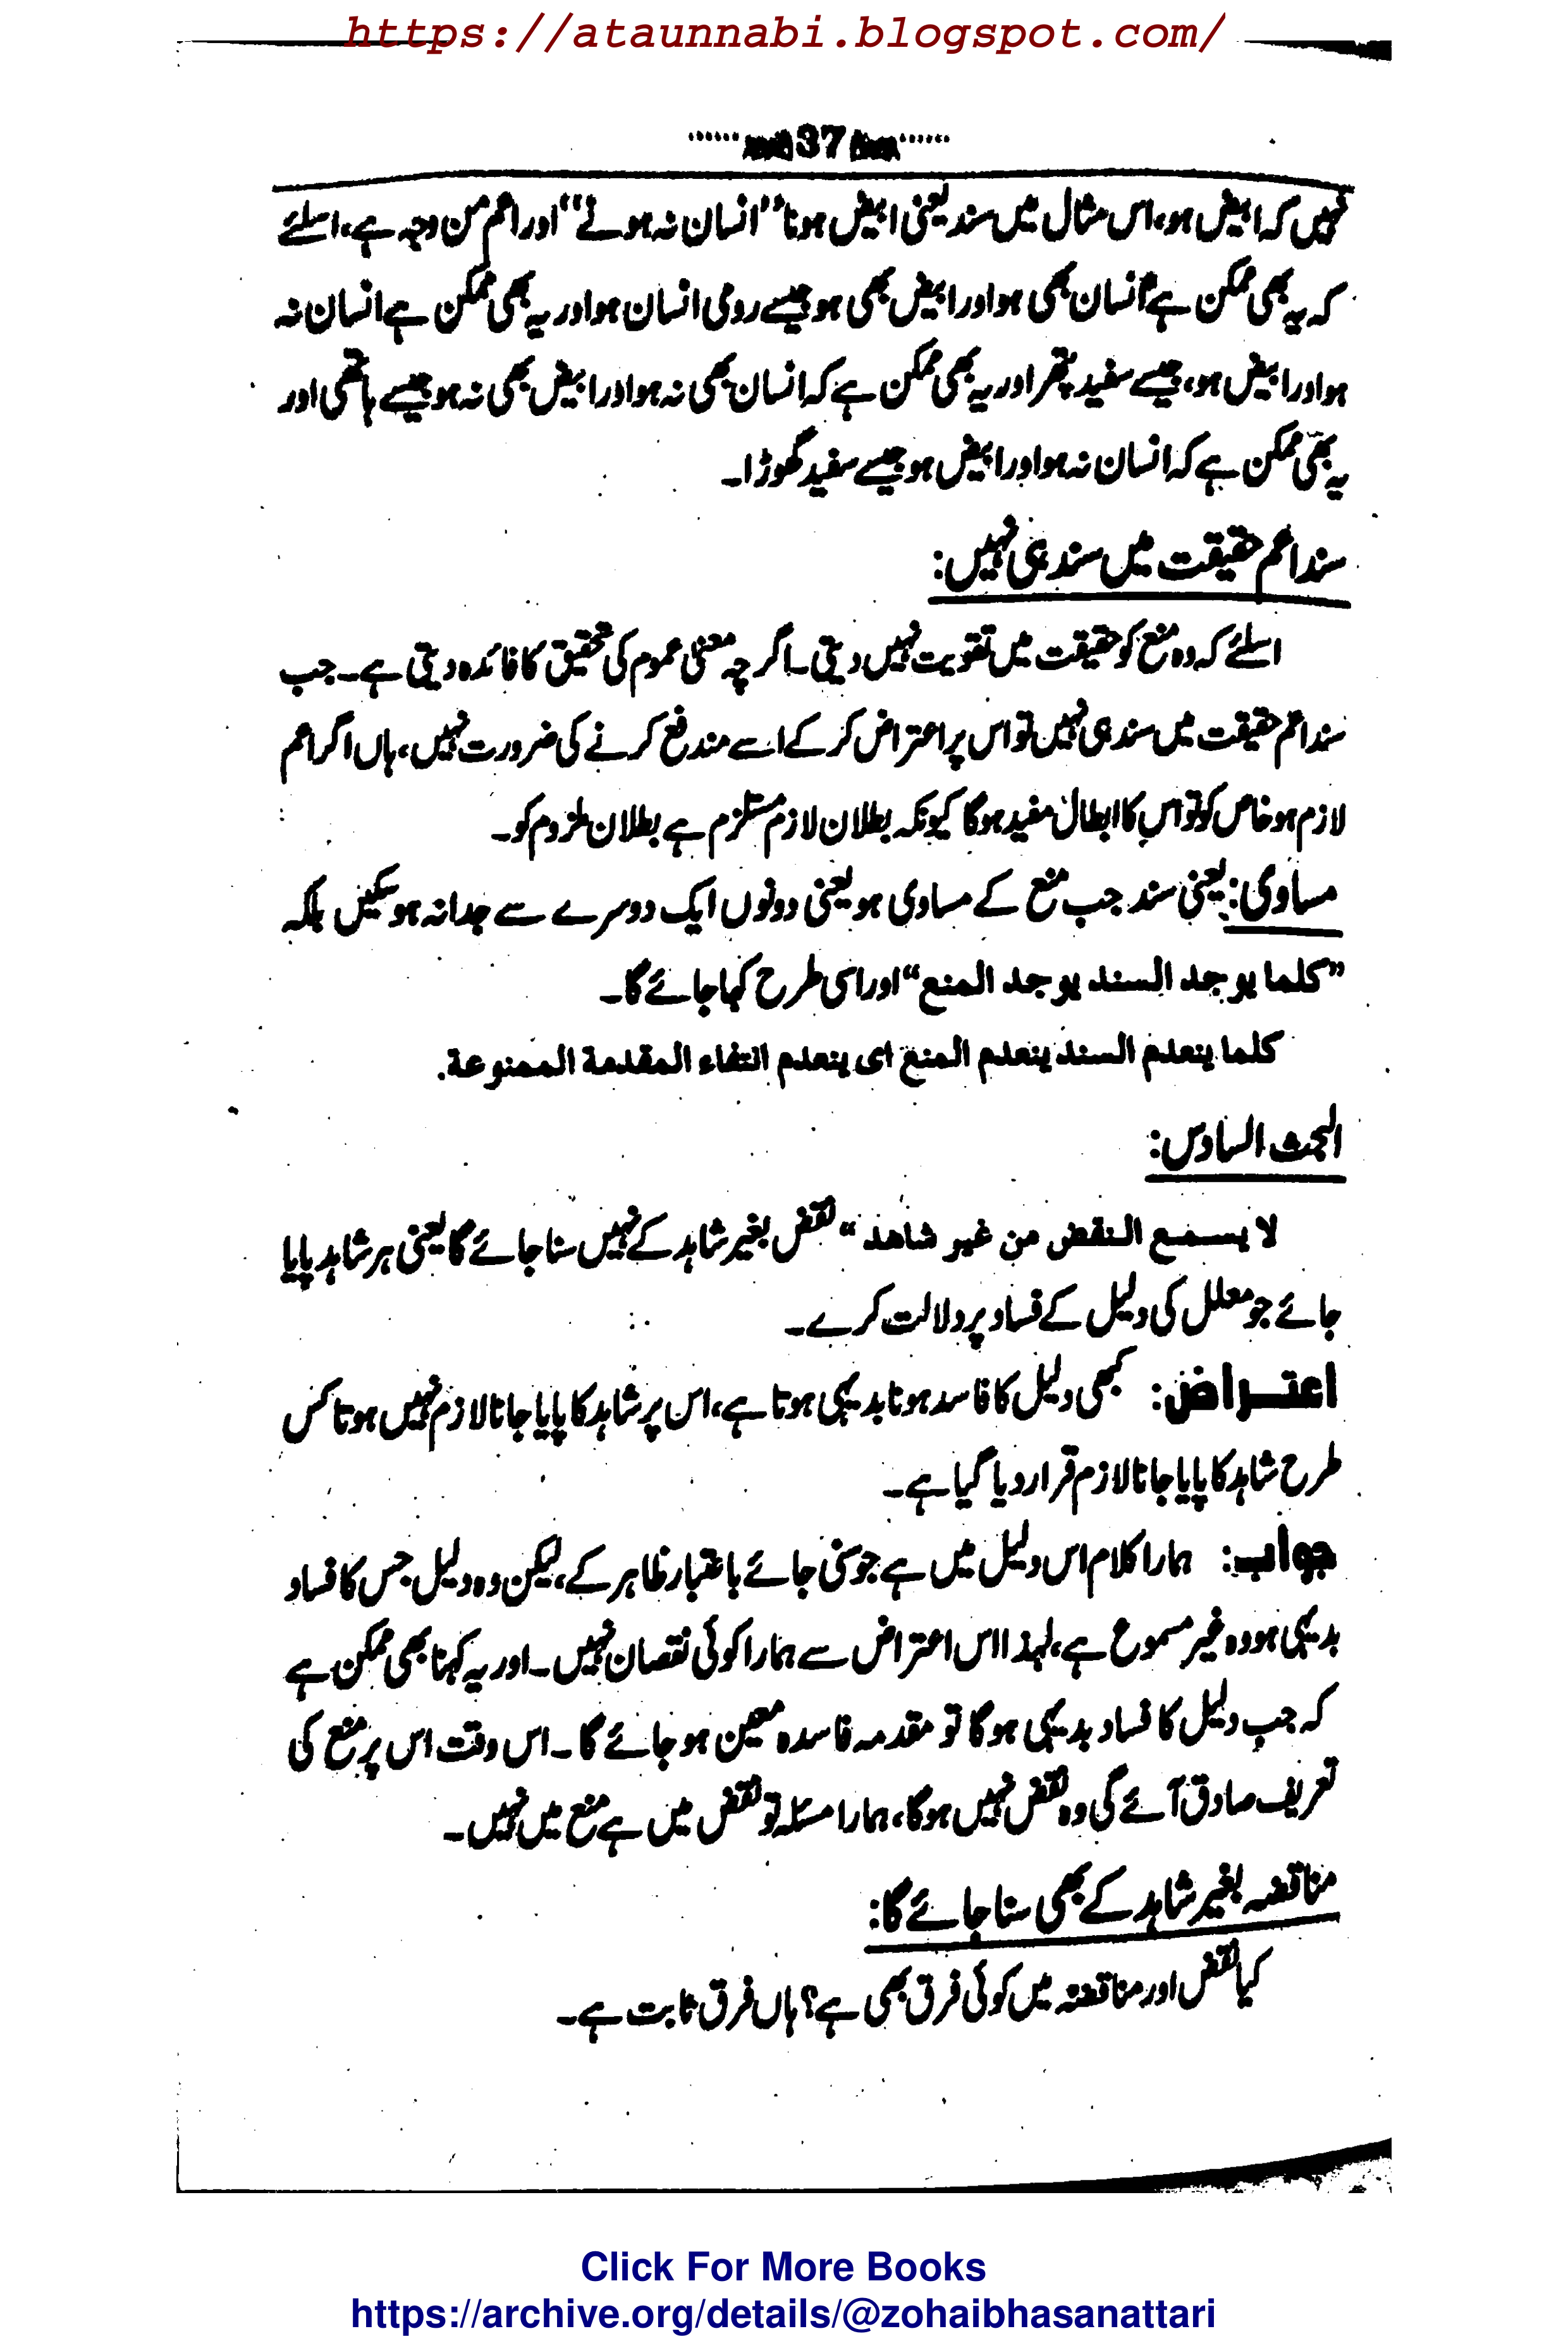 https://ataunnabi.blogspot.com/
37
نہیں کہ ابیض ہو، اس مثال میں سند یعنی ابیض ہونا ’’انسان نہ ہونے‘‘ اور اعم من وجہ ہے، اسلئے
کہ یہ بھی ممکن ہے انسان بھی ہو اور ابیض بھی ہو جیسے رومی انسان ہو اور یہ بھی ممکن ہے انسان نہ
ہو اور ابیض ہو، جیسے سفید پتھر اور یہ بھی ممکن ہے کہ انسان بھی نہ ہو اور ابیض بھی نہ ہو جیسے ہاتھی اور
یہ بھی ممکن ہے کہ انسان نہ ہو اور ابیض ہو جیسے سفید گھوڑا۔
سند اعم حقیقت میں سند ہی نہیں:
اسلئے کہ وہ منع کو حقیقت میں تقویت نہیں دیتی۔ اگرچہ معنی عموم کی تحقیق کا فائدہ دیتی ہے۔ جب
سند اعم حقیقت میں سند ہی نہیں تو اس پر اعتراض کر کے اسے مندفع کرنے کی ضرورت نہیں، ہاں اگر اعم
لازم ہو خاص کو تو اس کا ابطال مفید ہوگا کیونکہ بطلان لازم مستلزم ہے بطلان ملزوم کو۔
مساوی: یعنی سند جب منع کے مساوی ہو یعنی دونوں ایک دوسرے سے جدا نہ ہو سکیں بلکہ
’’کلما یوجد السند یوجد المنع‘‘ اور اسی طرح کہا جائے گا۔
کلما ینعدم السند ینعدم المنع ای ینعدم انتفاء المقدمة الممنوعة.
البحث السادس:
لا یسمع النقض من غیر شاهد ‘‘ نقض بغیر شاہد کے نہیں سنا جائے گا یعنی ہر شاہد پایا
جائے جو معلل کی دلیل کے فساد پر دلالت کرے۔
اعتراض: کبھی دلیل کا فاسد ہونا بدیہی ہوتا ہے، اس پر شاہد کا پایا جانا لازم نہیں ہوتا کس
طرح شاہد کا پایا جانا لازم قرار دیا گیا ہے۔
جواب: ہمارا کلام اس دلیل میں ہے جو سنی جائے باعتبار ظاہر کے، لیکن وہ دلیل جس کا فساد
بدیہی ہو وہ غیر مسموع ہے، لہذا اس اعتراض سے ہمارا کوئی نقصان نہیں۔ اور یہ کہنا بھی ممکن ہے
کہ جب دلیل کا فساد بدیہی ہوگا تو مقدمہ فاسدہ معین ہو جائے گا۔ اس وقت اس پر منع کی
تعریف صادق آئے گی وہ نقض نہیں ہوگا، ہمارا مسئلہ تو نقض میں ہے منع میں نہیں۔
مناقضہ بغیر شاہد کے بھی سنا جائے گا:
کیا نقض اور مناقضہ میں کوئی فرق بھی ہے؟ ہاں فرق ثابت ہے۔
Click For More Books
https://archive.org/details/@zohaibhasanattari